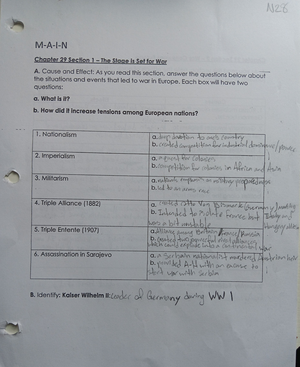 N28
M-A-I-N
Chapter 29 Section 1 – The Stage is Set for War
A. Cause and Effect: As you read this section, answer the questions below about
the situations and events that led to war in Europe. Each box will have two
questions:
a. What is it?
b. How did it increase tensions among European nations?
1. Nationalism
a. deep devotion to one's country
b. created competition for industrial dominance/
2. Imperialism
a. for colonies
b. competition for colonies in Africa and Asia
3. Militarism
a. military preparedness
b. led to an arms race
4. Triple Alliance (1882)
a. Germany/
b. Intended to isolate France but
was a bit unstable
5. Triple Entente (1907)
a. alliance among Britain/France/Russia
b. created two
which could explode into a war
6. Assassination in Sarajevo
a. a Serbian nationalist murdered
b. provided A-H with an excuse to
start war with Serbia
B. Identify: Kaiser Wilhelm II: Leader of Germany during WW1